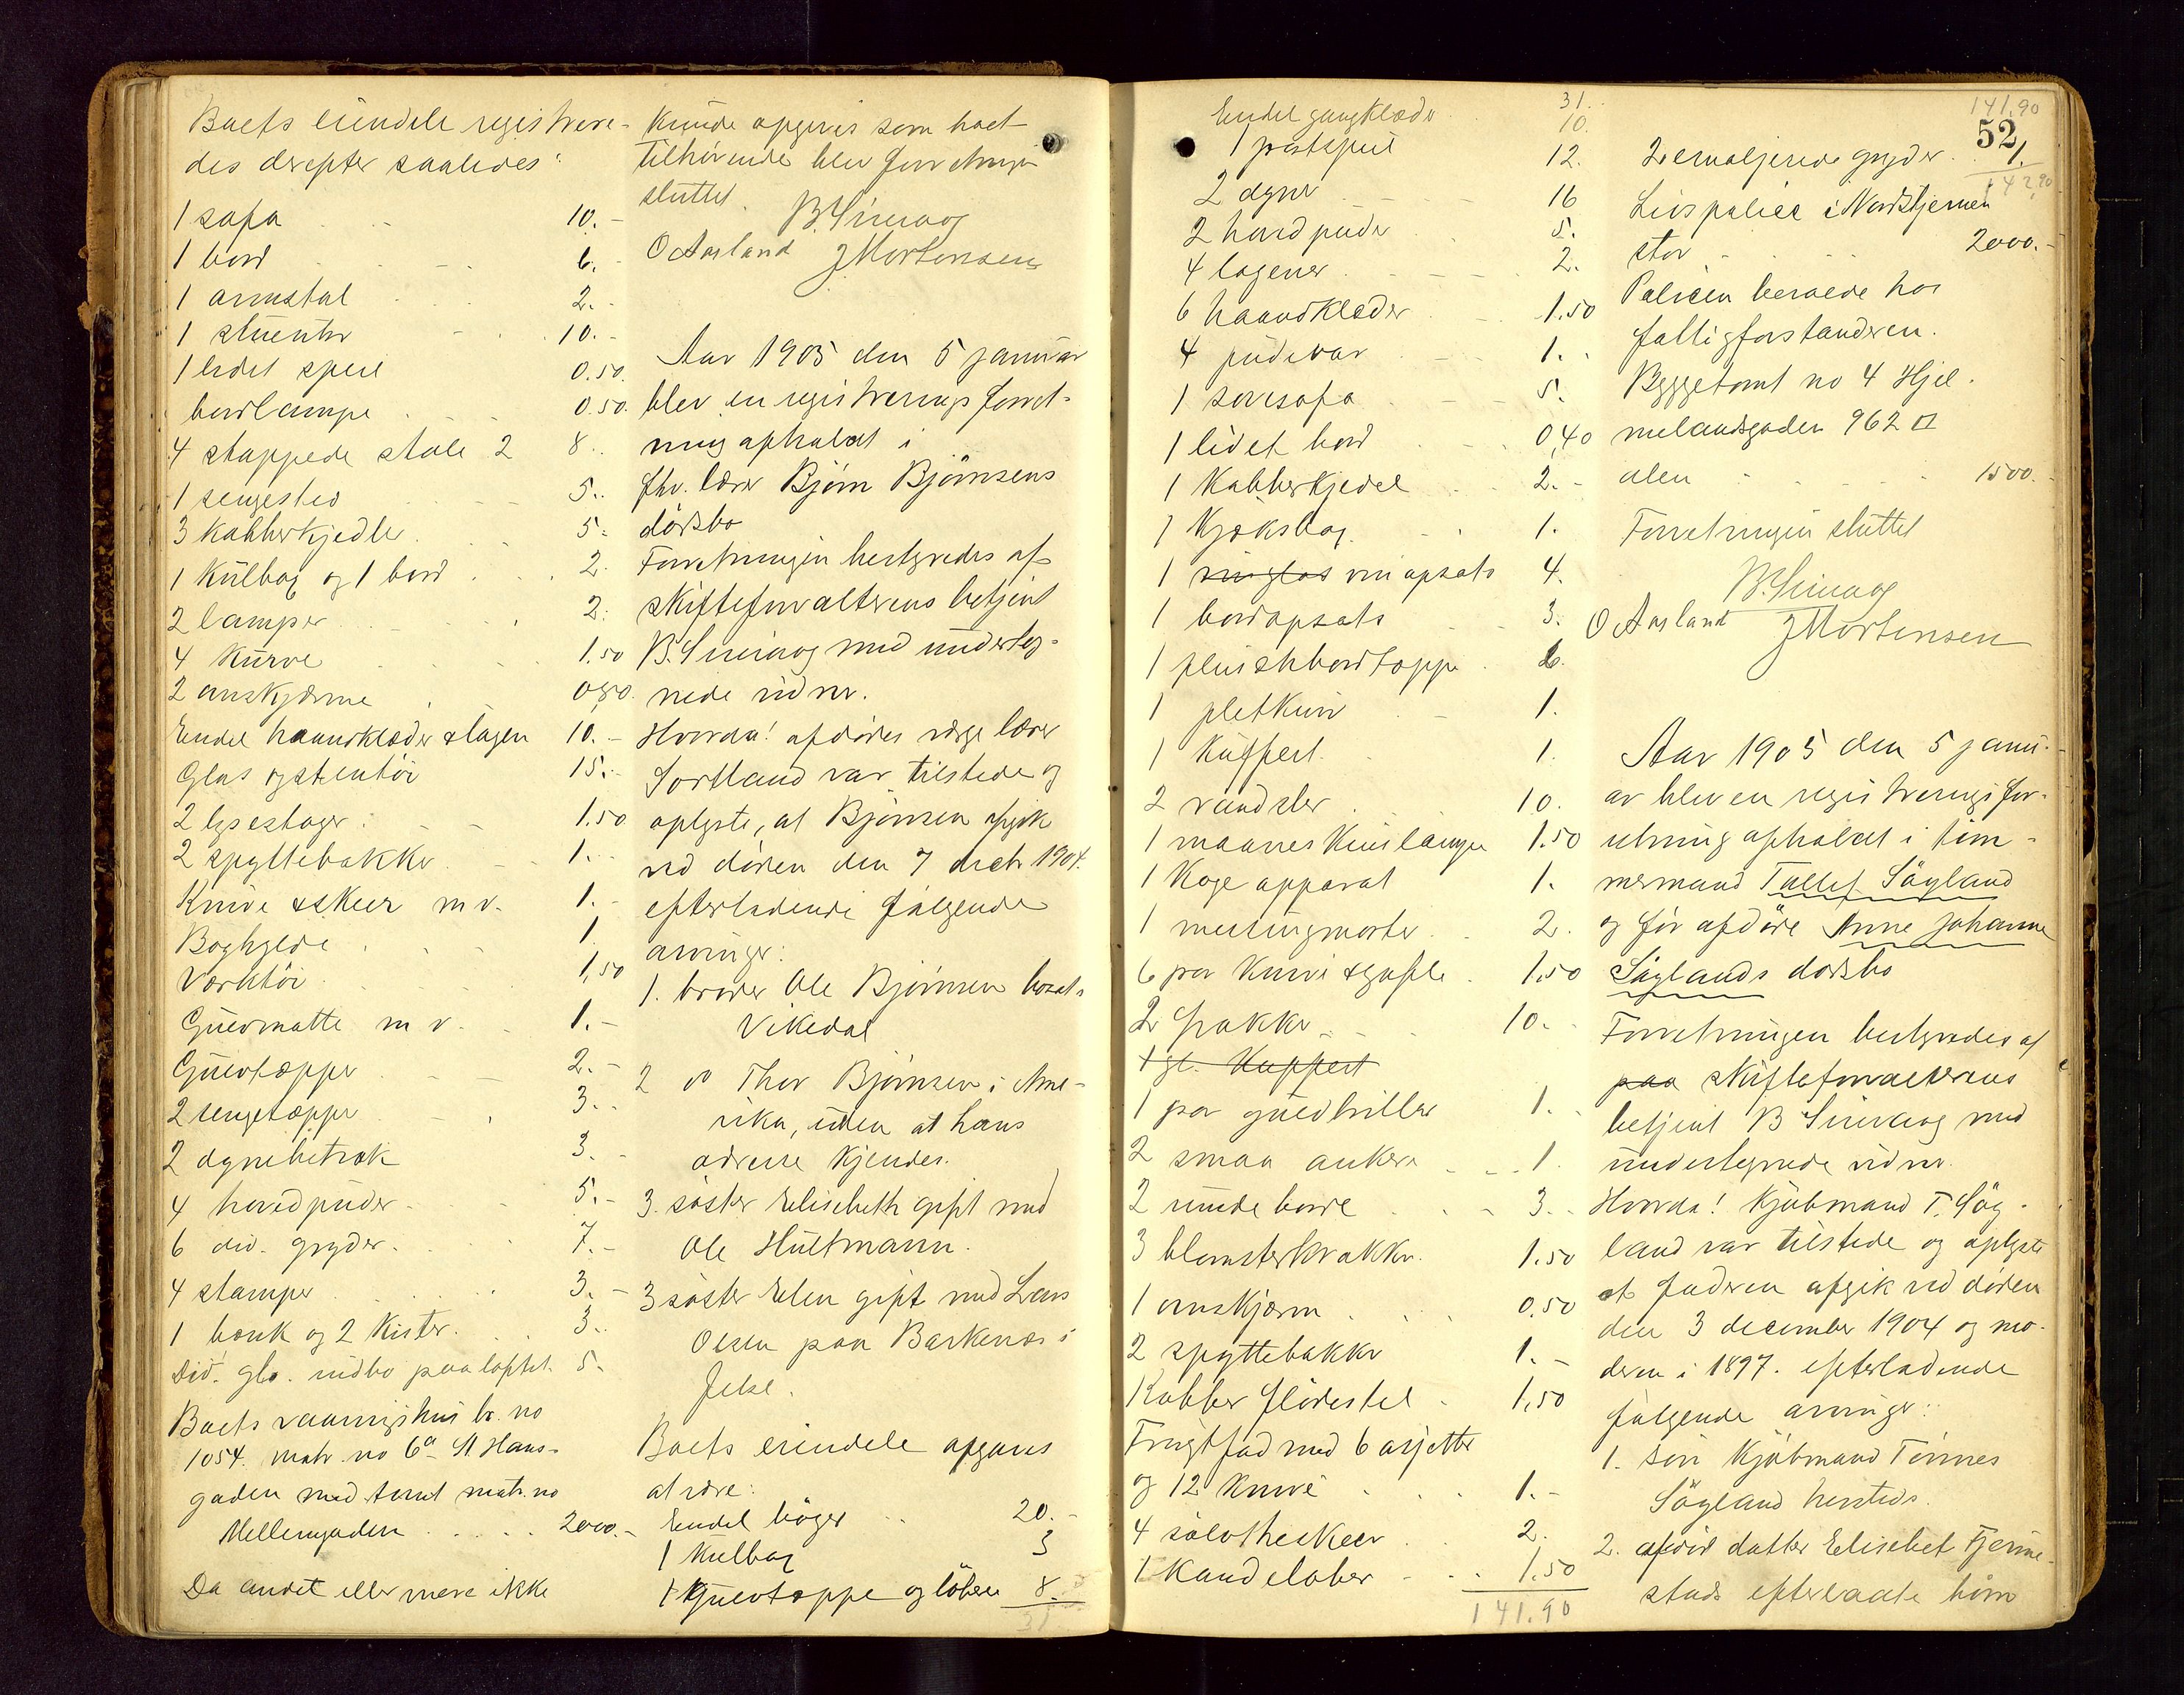 Boets eiendele registrere-
des derefter saaledes:
1 sofa 10.-
1 bord 6.-
1 armstol 2.-
1 stueuhr 10.-
1 lidet speil 0.50.
bordlampe 0.50.
4 stoppede stole 2 8..
1 sengested 5..
3 kobberkjedler 5.
1 kulbox og 1 bord 2.
2 lamper 2.
4 kurve 1.50
2 ovnskjærme 0,50.
Endel haandklæder & lagen 10.-
Glas og stentöi 15.-
2 lysestager 1.50
2 spyttebakker 1.
Knive & skeer m v. 1.-
Boghylde 1.
Værktöi 1,50
Gulvmatte m v. 1.-
Gulvtæpper 2.-
2 sengetæpper 3.
2 dynebetræk 3.
4 hovedpuder 5.-
6 div. gryder. 7.-
4 stamper 3.-
1 bænk og 2 kister. 3.
Div. glo. indbo paa loftet. 5.
Boets vaaningshus br. no
1054. matr. no 6a St. Hans-
gaden med tomt matr. no
Mellemgaden 2000.-
Da andet eller mere ikke
kunde opgives som boet
tilhörende blev forretningen
sluttet.
B. Sirevaag
O Aarland J Mortensen
Aar 1905 den 5 januar
blev en registreringsforret-
ning afholdt i
fhv. lærer Björn Björnsens
dödsbo
Forretningen bestyredes af
skifteforvalterens betjent
B. Sirevaag med underteg-
nede vidner.
Hvorda! afdödes værge lærer
Sortland var tilstede og
oplyste, at Björnsen afgik
ved döden den 7 decbr 1904.
efterladende fölgende
arvinger:
1. broder Ole Björnsen bosat
Vikedal
2 do Thor Björnsen i Ame-
rika, uden at hans
adresse kjendes.
3. söster Elisebeth gift med
Ole Hultmann.
3 söster Elen gift med Lars
Olsen paa Barkenæs i
Jelse.
Boets eiendele opgaves
at være:
Endel böger 20.-
1 kulbox 3
1 gulvtæppe og löbere 8.
31
Endel gangklæder 31. 10.
1 portspeil 12.
2 dyner 16
2 hovedpuder 5.
4 lagener 2.
6 haandklæder 1.50
4 pudevar 1.
1 sovesofa 5.
1 lidet bord 0,40
1 kobberkjedel 2.-
1 kjöksbog 1.
1 vinglas vinopsats 4.
1 bordopsats 3.
1 pluischbordtæppe 6.
1 pletkurv 1.
1 kuffert. 1.
2 vandsler 10.
1 maaneskinslampe 1.50
1 kogeapparat 1.
1 messingmorter 2.
6 par knive & gafle 1,50
2 frakker 10.
1 gl. kuffert
1 par guldbriller 1.
2 smaa ankere 1.
2 runde borde 3.
3 blomsterkrakker. 1.50
1 ovnskjærm 0,50
2 spyttebakker 1.-
Kobber flödestel 1,50
Frugtfad med 6 asjetter
og 12 knive 1.-
4 sölvtheskeer 2.
1 kandelaber 1.50
141.90
141.90
52
2 emaljerede gryder 1.
142,90
Livspolice i Nordstjernen
stor 2000.-
Policen beroede hos
fattigforstanderen.
Byggetomt no 4 Hjel-
melandsgaden 962 □
alen 1500.
Forretningen sluttet
B. Sirevaag
O Aarland J Mortensen
Aar 1905 den 5 janu-
ar blev en registreringsfor-
retning afholdt i töm-
mermand Tollef Sögland
og för afdöde Anne Johanne
Söglands dödsbo
Forretningen bestyredes af
paa skifteforvalterens
betjent B Sirevaag med
undertegnede vidner.
Hvorda! Kjöbmand T. Sög-
land var tilstede og oplyste
at faderen afgik ved döden
den 3 december 1904 og mo-
deren i 1897. efterladende
fölgende arvinger:
1. sön kjöbmand Tönnes
Sögland hersteds.
2. afdöd datter Elisebet Tjerne-
stads efterladte börn